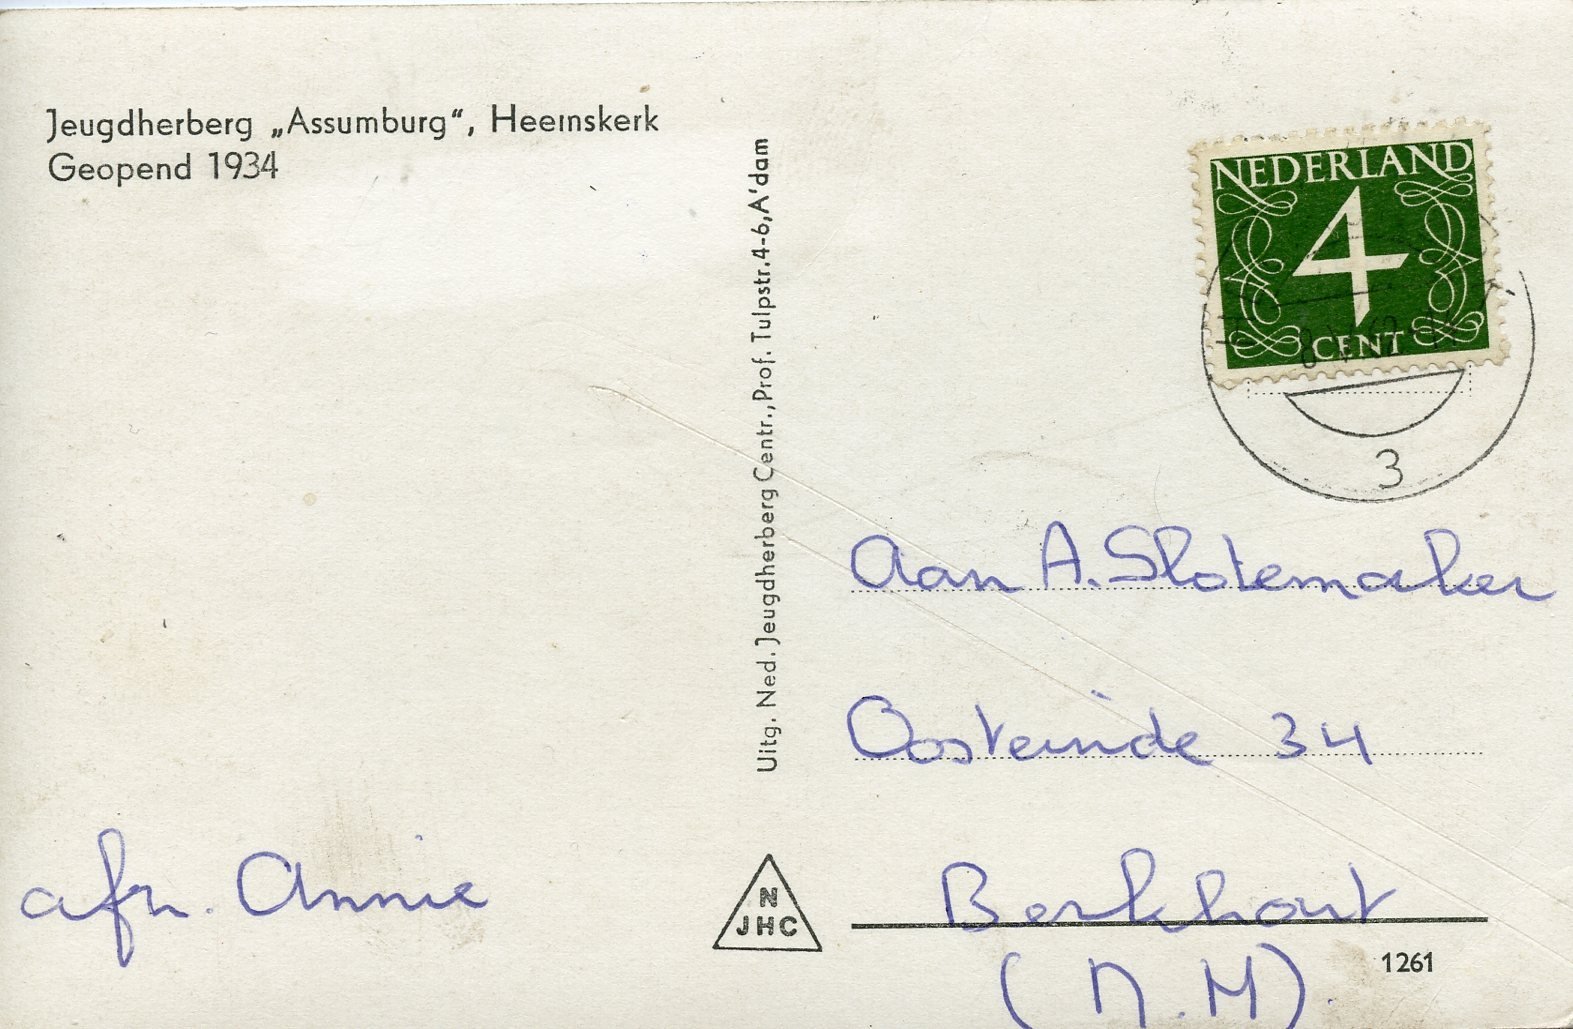 Jeugdherberg „Assumburg“, Heemskerk
Geopend 1934
Uitg. Ned. Jeugdherberg Centr., Prof. Tulpstr. 4-6, A'dam
NEDERLAND
4
CENT
3
aan A. Slotemaker
Oosteinde 34
Berkhout
(N.H).
afz. Annie
N
JHC
1261